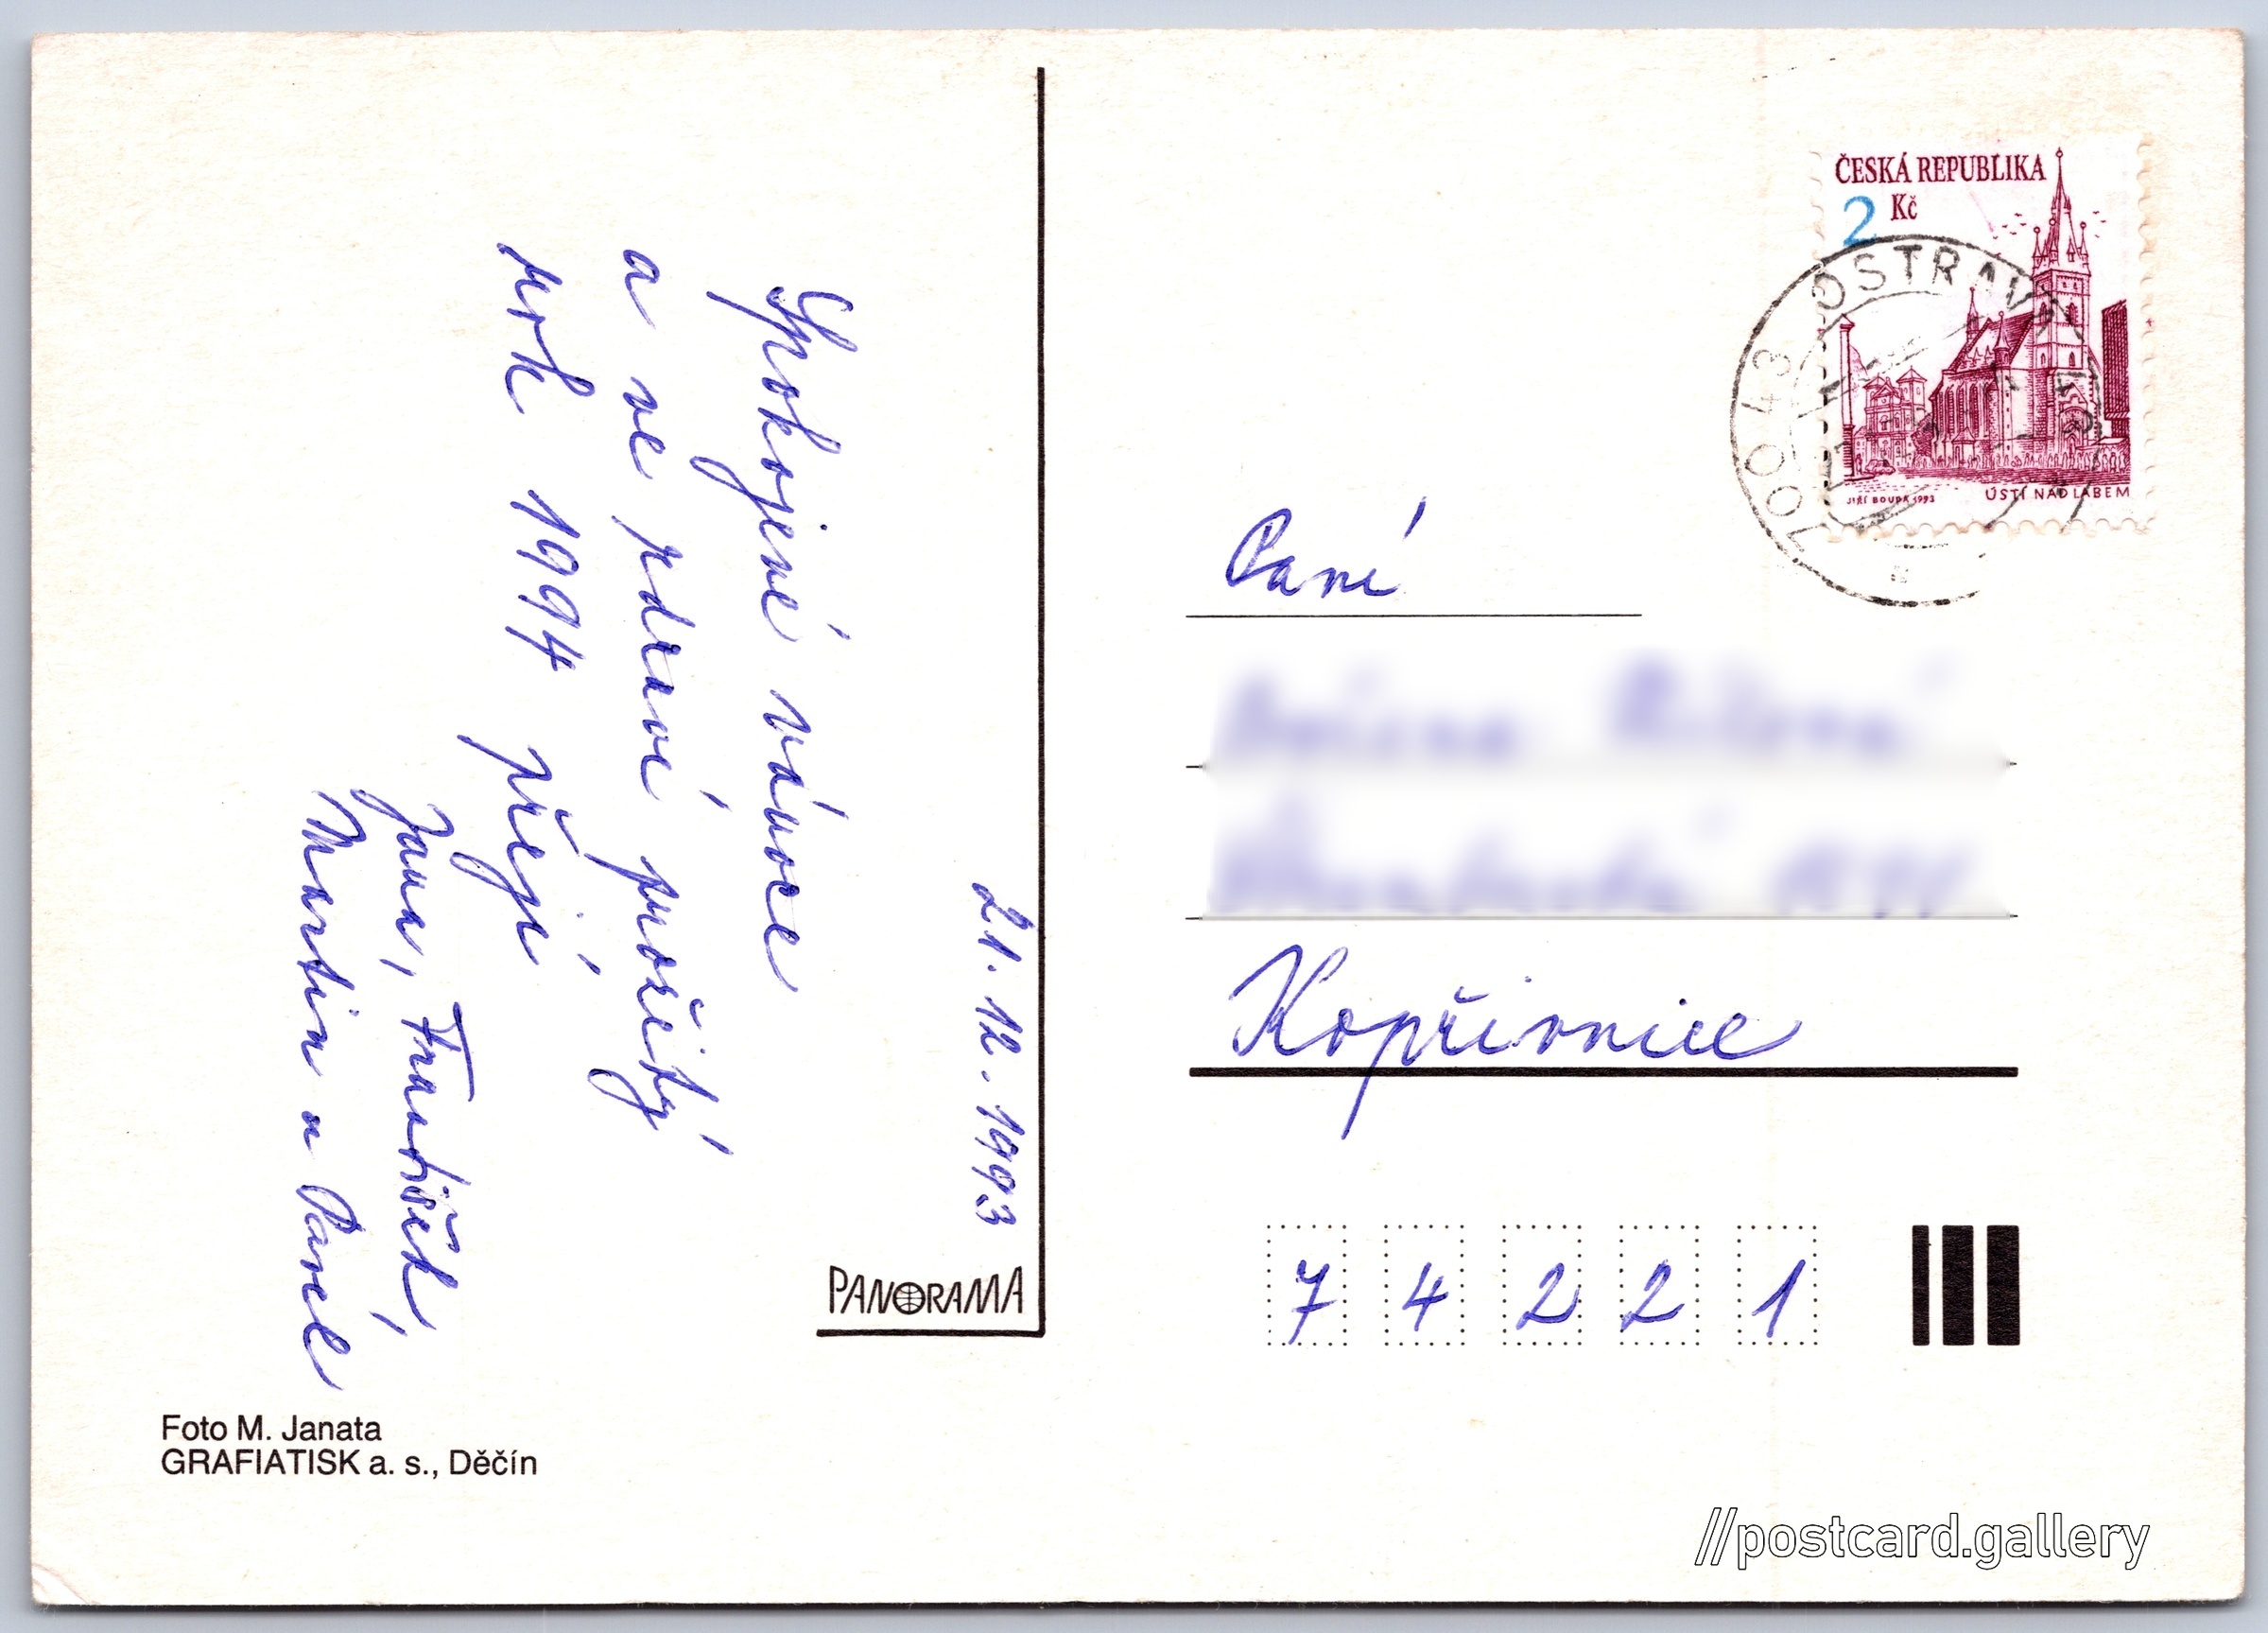 21. 12. 1993
Spokojené vánoce
a ve zdraví prožitý
rok 1994 přejí
Jana, František,
Martin a Pavel
PANORAMA
Foto M. Janata
GRAFIATISK a. s., Děčín
ČESKÁ REPUBLIKA
2 Kč
JIŘÍ BOUDA 1993
ÚSTÍ NAD LABEM
OSTRAVA 43
700 43
Paní
Kopřivnice
7 4 2 2 1
//postcard.gallery